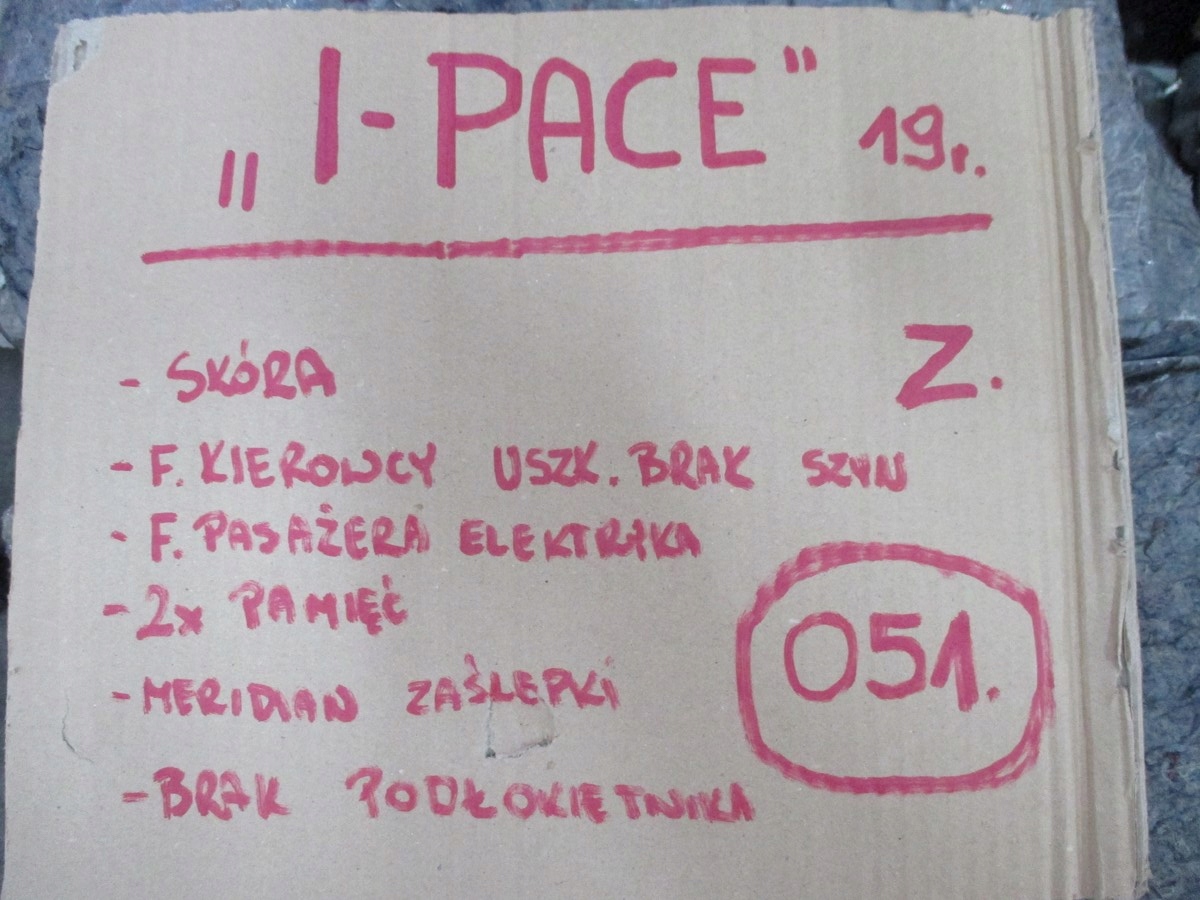 „I-PACE” 19r.
Z.
- SKÓRA
- F. KIEROWCY USZK. BRAK SZYN
- F. PASAŻERA ELEKTRYKA
- 2x PAMIĘĆ
- MERIDIAN ZAŚLEPKI
051.
- BRAK PODŁOKIETNIKA